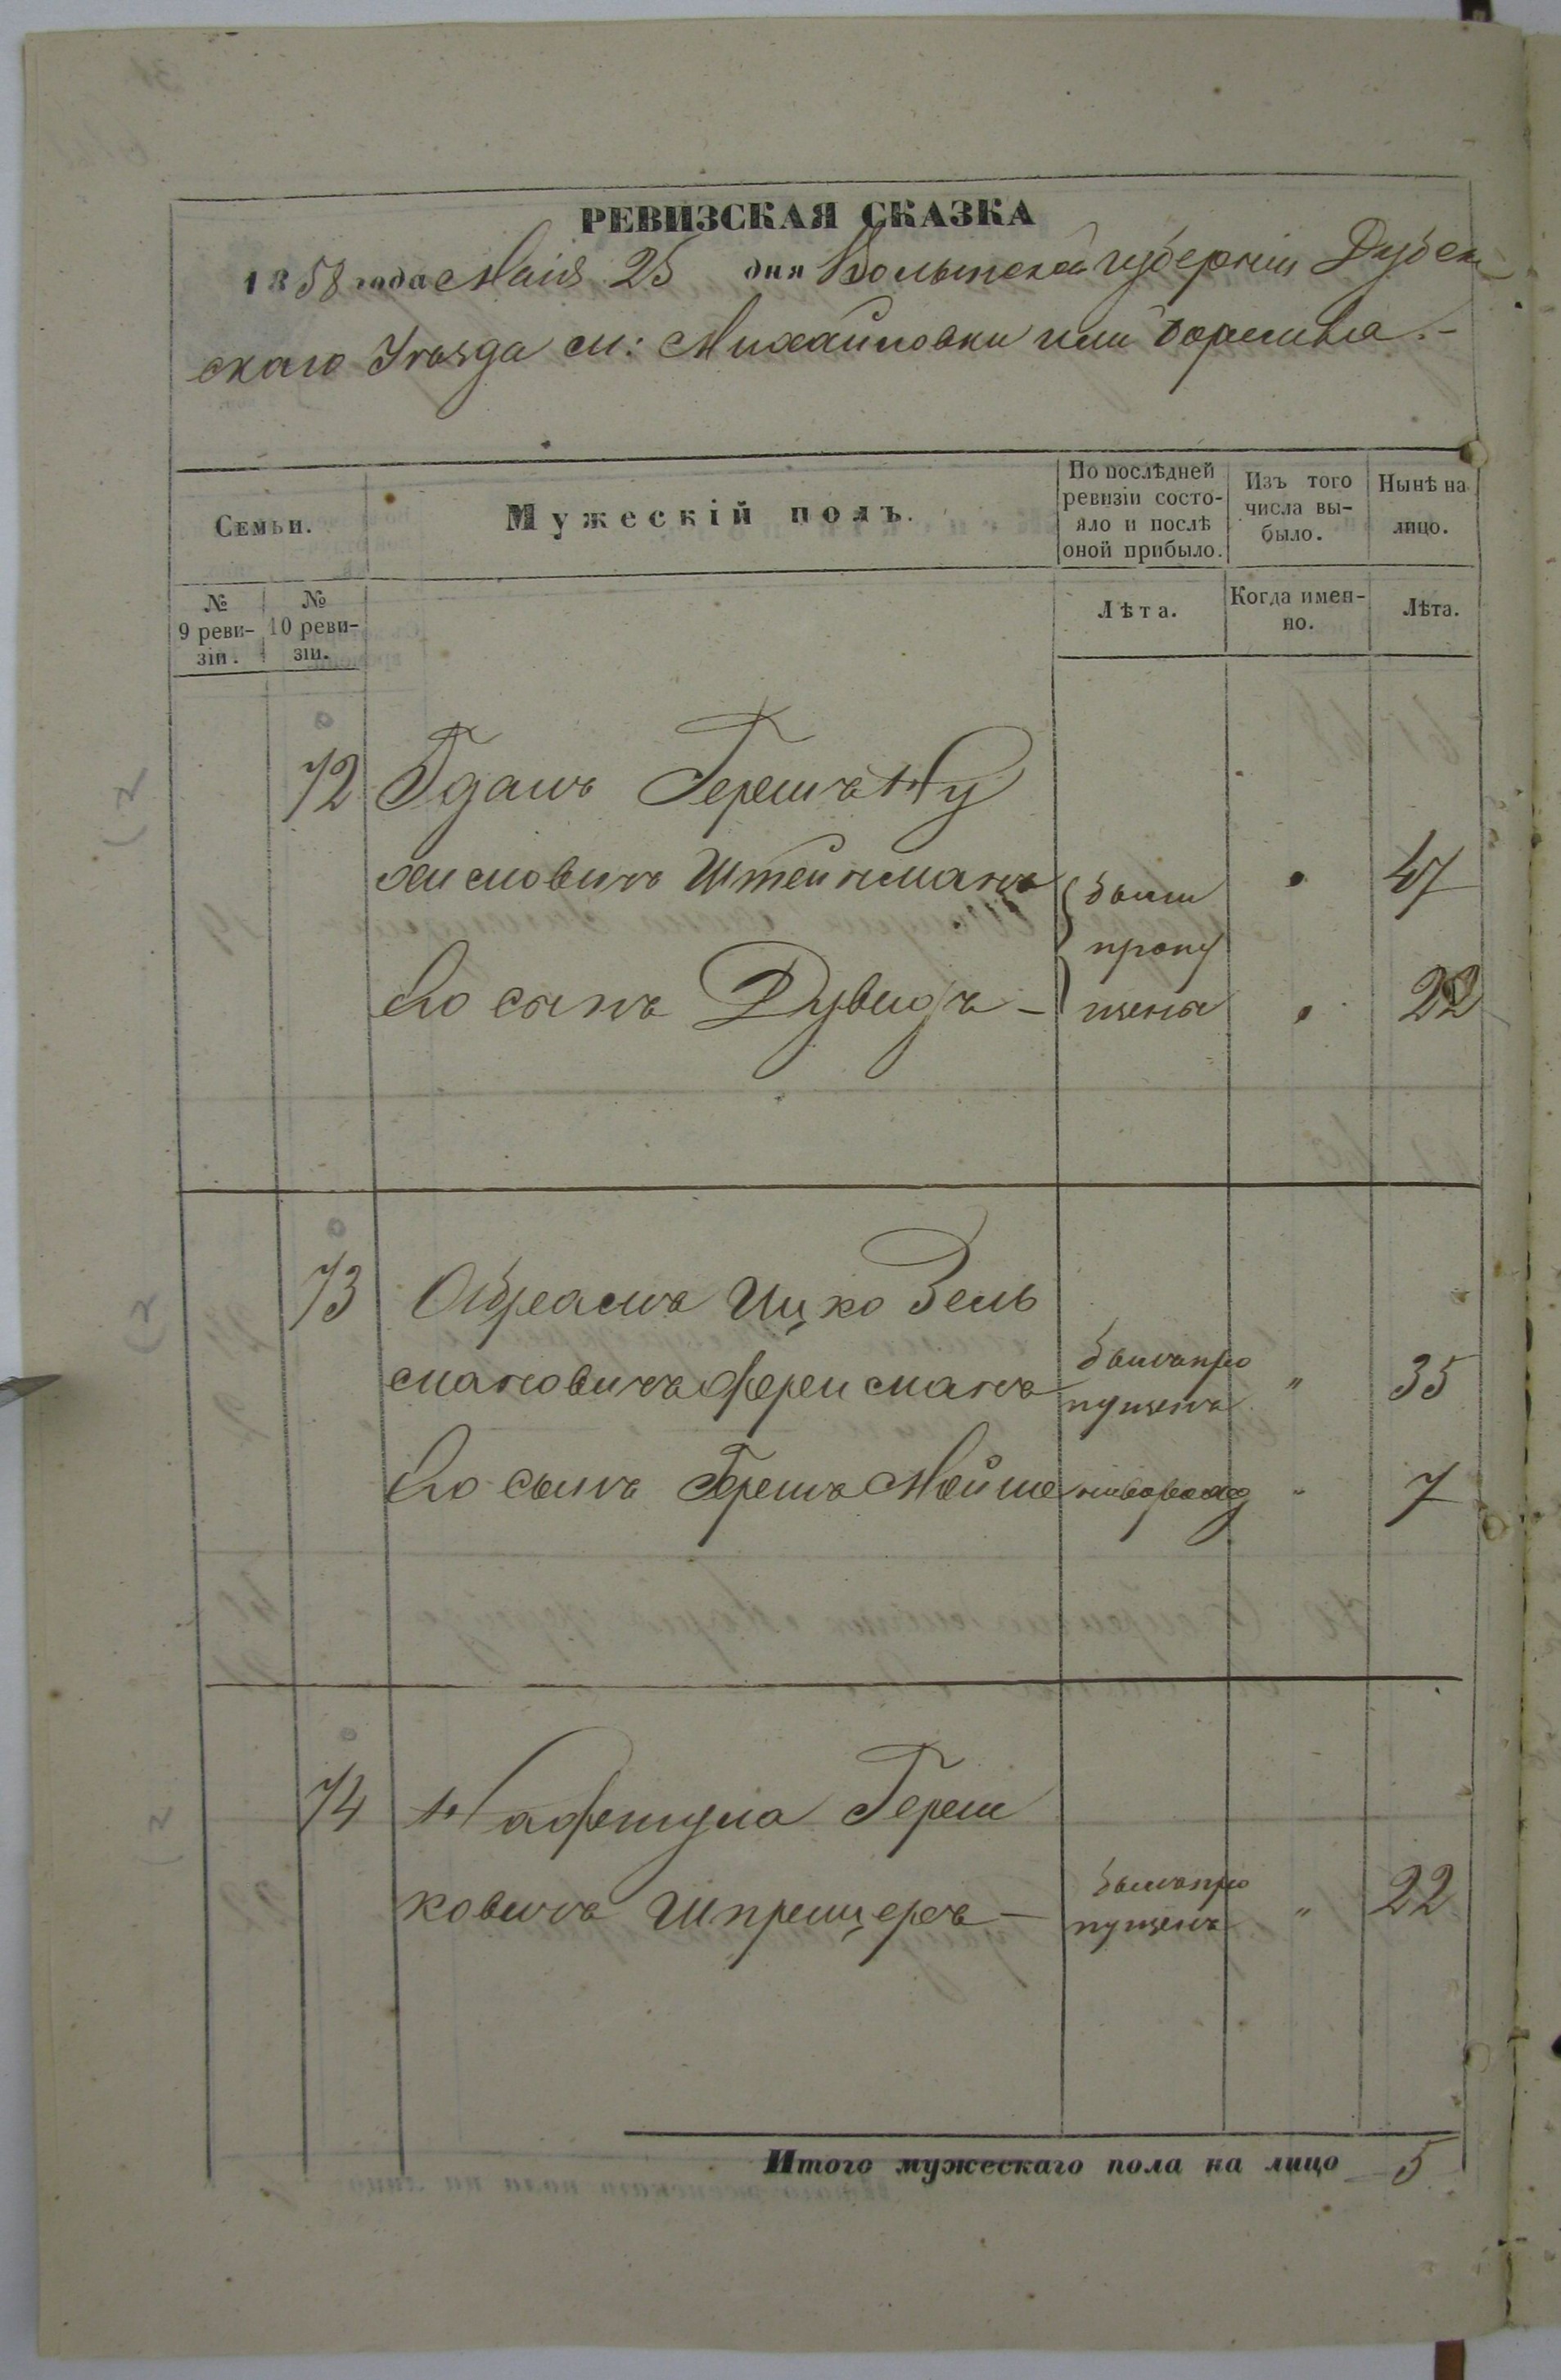 РЕВИЗСКАЯ СКАЗКА
1858 года Маія 25 дня Волынской губерніи Дубен
скаго Уѣзда м: Михайловки или Боремля.-
Семьи.
Мужескій полъ.
По послѣдней ревизіи состо-
яло и послѣ оной прибыло.
Изъ того числа вы-
было.
Нынѣ на лицо.
№ 9 реви-
зіи.
№ 10 реви-
зіи.
Лѣта.
Когда имен-
но.
Лѣта.
72 Гершъ Ну
химовичъ Штейнманъ были 47
пропу
Его сынъ Дувидъ - щены 22
73 Абрамъ Ицко Зель
мановичъ Фереманъ былъ про
пущенъ " 35
Его сынъ Гершъ Мойше новорож 7
74 Нафтула Герш
ковичъ Шприцеръ - былъ про
пущенъ " 22
Итого мужескаго пола на лицо 5